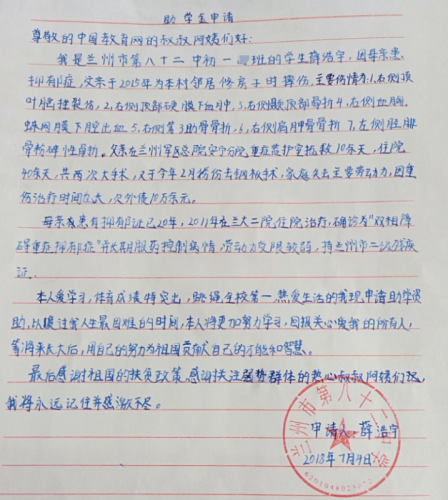 助学金申请
尊敬的中国教育网的叔叔阿姨们好:
我是兰州市第八十二中初一班的学生薛浩宇,因母亲患
抑郁症,父亲于2015年为本村邻居修房子时摔伤,主要伤情为:1,右侧顶
叶脑挫裂伤,2,右侧顶部硬膜下血肿,3,右侧颞顶部骨折4,右侧血胸,
蛛网膜下腔出血5,右侧第3肋骨骨折,6,右侧肩胛骨骨折7,左侧胫腓
骨粉碎性骨折,父亲在兰州军区总院安宁分院,重症监护室抢救10多天,住院
40多天,共两次大手术,又于今年2月将伤去钢板手术,家庭失去主要劳动力,因重
伤治疗时间久大,欠外债10万余元。
母亲患有抑郁证已20年,2011年在兰大二院住院治疗,确诊为"双相障
碍重症抑郁症"并长期服药控制病情,劳动力受限较弱,持兰州市二级残疾
证.
本人爱学习,体育成绩特突出,跳绳全校第一,热爱生活的我现申请助学资
助,以度过我人生最困难的时间,本人将更加努力学习,回报关心爱我的所有人,
等将来长大后,用自己的努力为祖国贡献自己的才能和智慧。
最后感谢祖国的扶贫政策,感谢关注弱势群体的热心叔叔阿姨们,
我将永远记住并感激不尽。
申请人 薛浩宇
2018年7月4日
兰州市第八十二中学